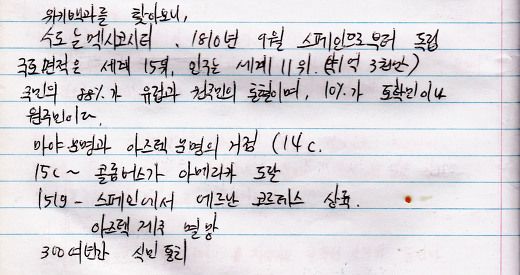 위키백과를 찾아보니,
수도는 멕시코시티. 1810년 9월 스페인으로부터 독립
국토면적은 세계 15위, 인구는 세계 11위. (1억 3천만)
국민의 88%가 유럽과 원주민의 혼혈이며, 10%가 토착민이나
원주민이다.
마야 문명과 아즈텍 문명의 거점 (14c.
15c ~ 콜롬버스가 아메리카 도착
1519 - 스페인에서 에르난 코르테스 상륙.
아즈텍 제국 멸망
300여년간 식민 통치